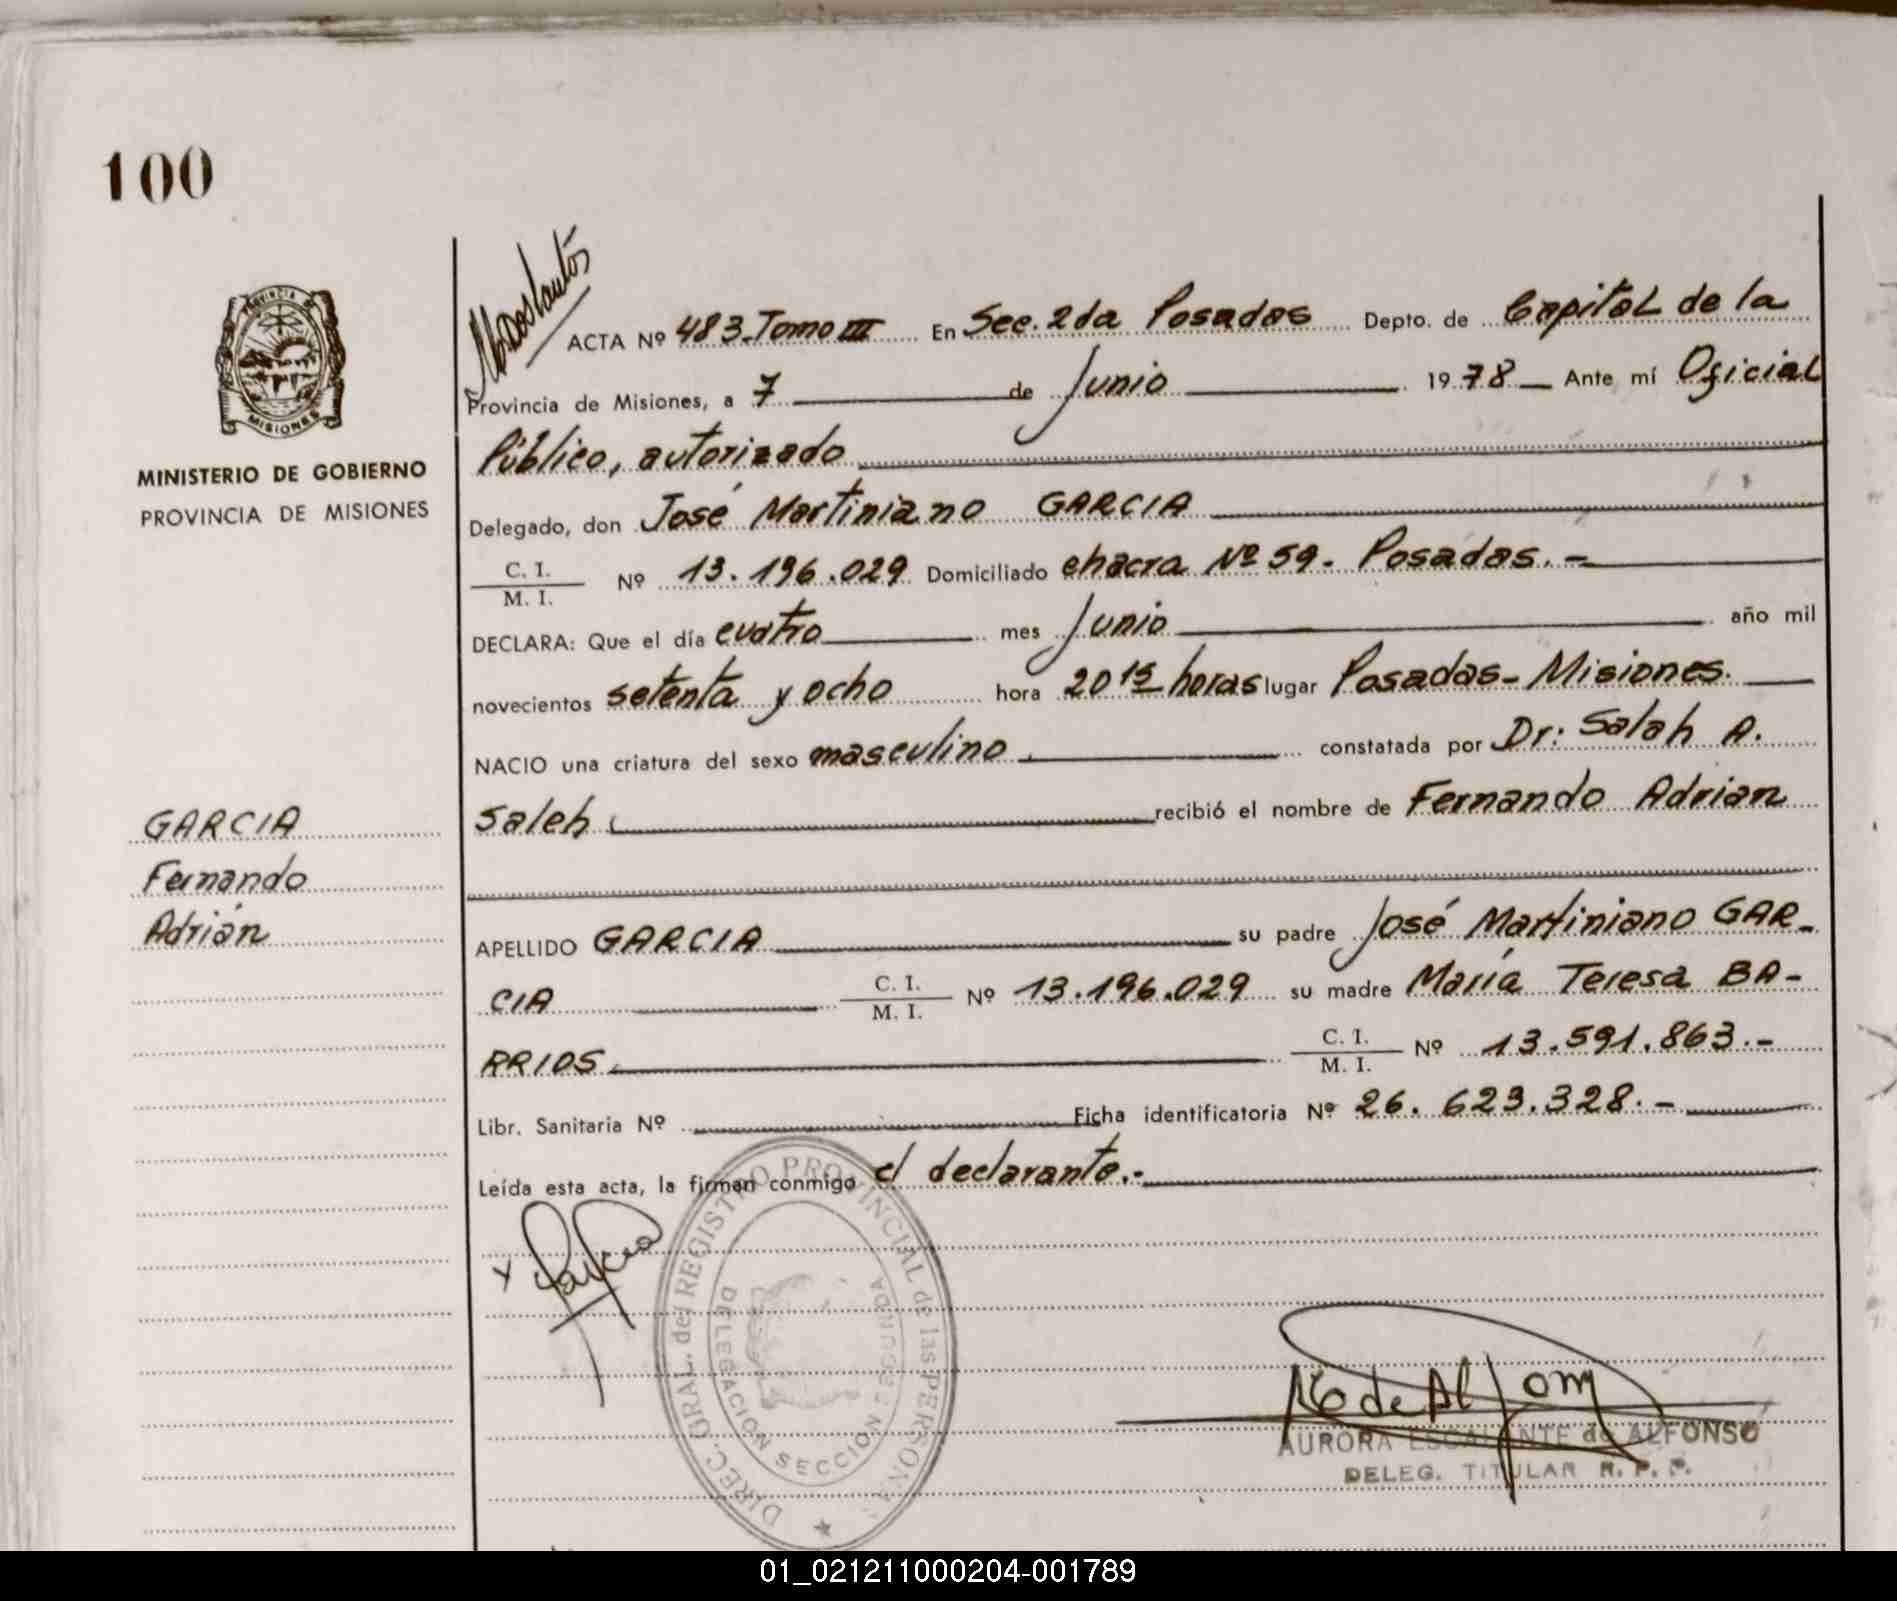 100
PROVINCIA DE
MISIONES
MINISTERIO DE GOBIERNO
PROVINCIA DE MISIONES
GARCIA
Fernando
Adrián
ACTA Nº 483.Tomo III En Sec. 2da Posadas Depto. de Capital de la
Provincia de Misiones, a 7 de Junio 1978 Ante mí Oficial
Público, autorizado
Delegado, don José Martiniano GARCIA
C. I.
M. I. Nº 13.196.029 Domiciliado chacra Nº 59. Posadas.-
DECLARA: Que el día cuatro mes Junio año mil
novecientos setenta y ocho hora 20 15 horas lugar Posadas-Misiones.
NACIO una criatura del sexo masculino constatada por Dr: Salah A.
Saleh recibió el nombre de Fernando Adrian
APELLIDO GARCIA su padre José Martiniano GAR-
CIA C. I.
M. I. Nº 13.196.029 su madre María Teresa BA-
RRIOS. C. I.
M. I. Nº 13.591.863.-
Libr. Sanitaria Nº Ficha identificatoria Nº 26.623.328.-
Leída esta acta, la firman conmigo el declarante.-
DIREC. GRAL. del REGISTRO PROVINCIAL de las PERSONAS
DELEGACION SECCION SEGUNDA
AURORA ESCALANTE de ALFONSO
DELEG. TITULAR R. P. P.
01_021211000204-001789